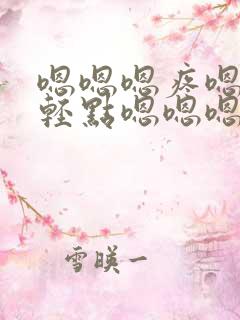 嗯嗯嗯疼嗯
轻點嗯嗯嗯
雪暎一